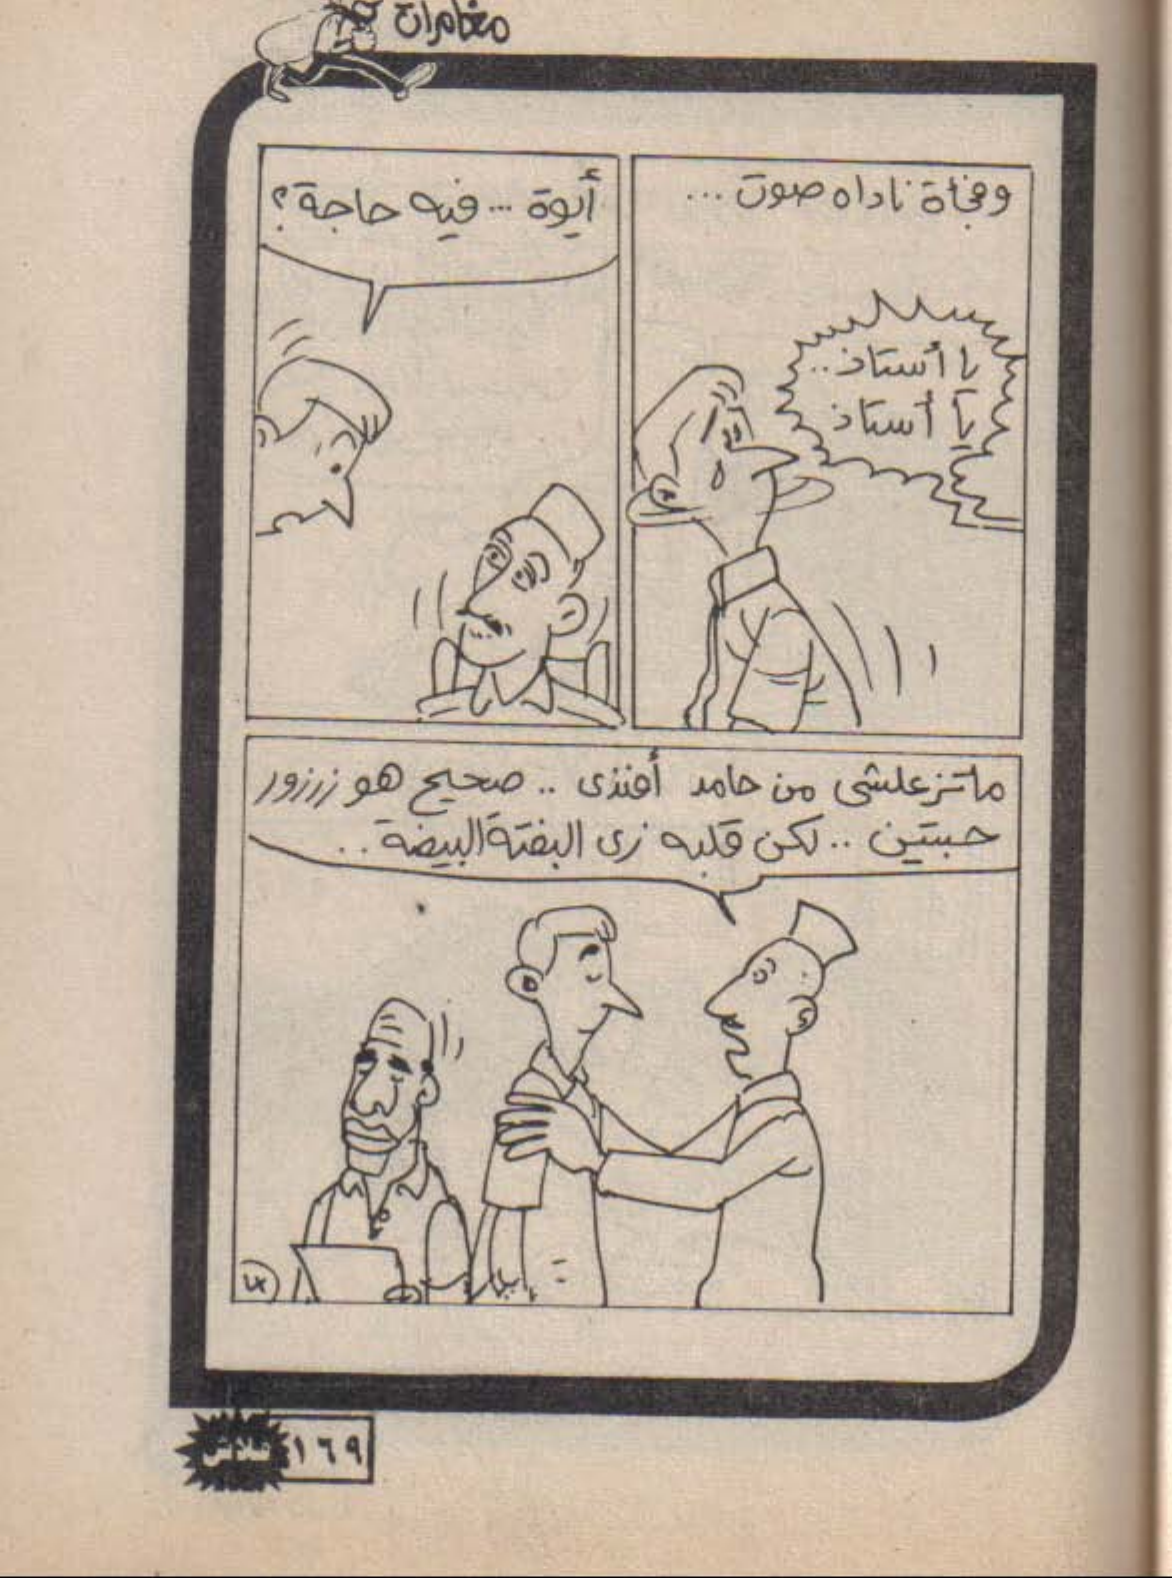 مغامرات
وفجأة ناداه صوت ...
يا أستاذ..
يا أستاذ
أيوة ... فيه حاجة؟
ماتزعلشى من حامد أفندى .. صحيح هو زرزور
حبتين .. لكن قلبه زى البفتة البيضة ..
١٦٩
فلاش